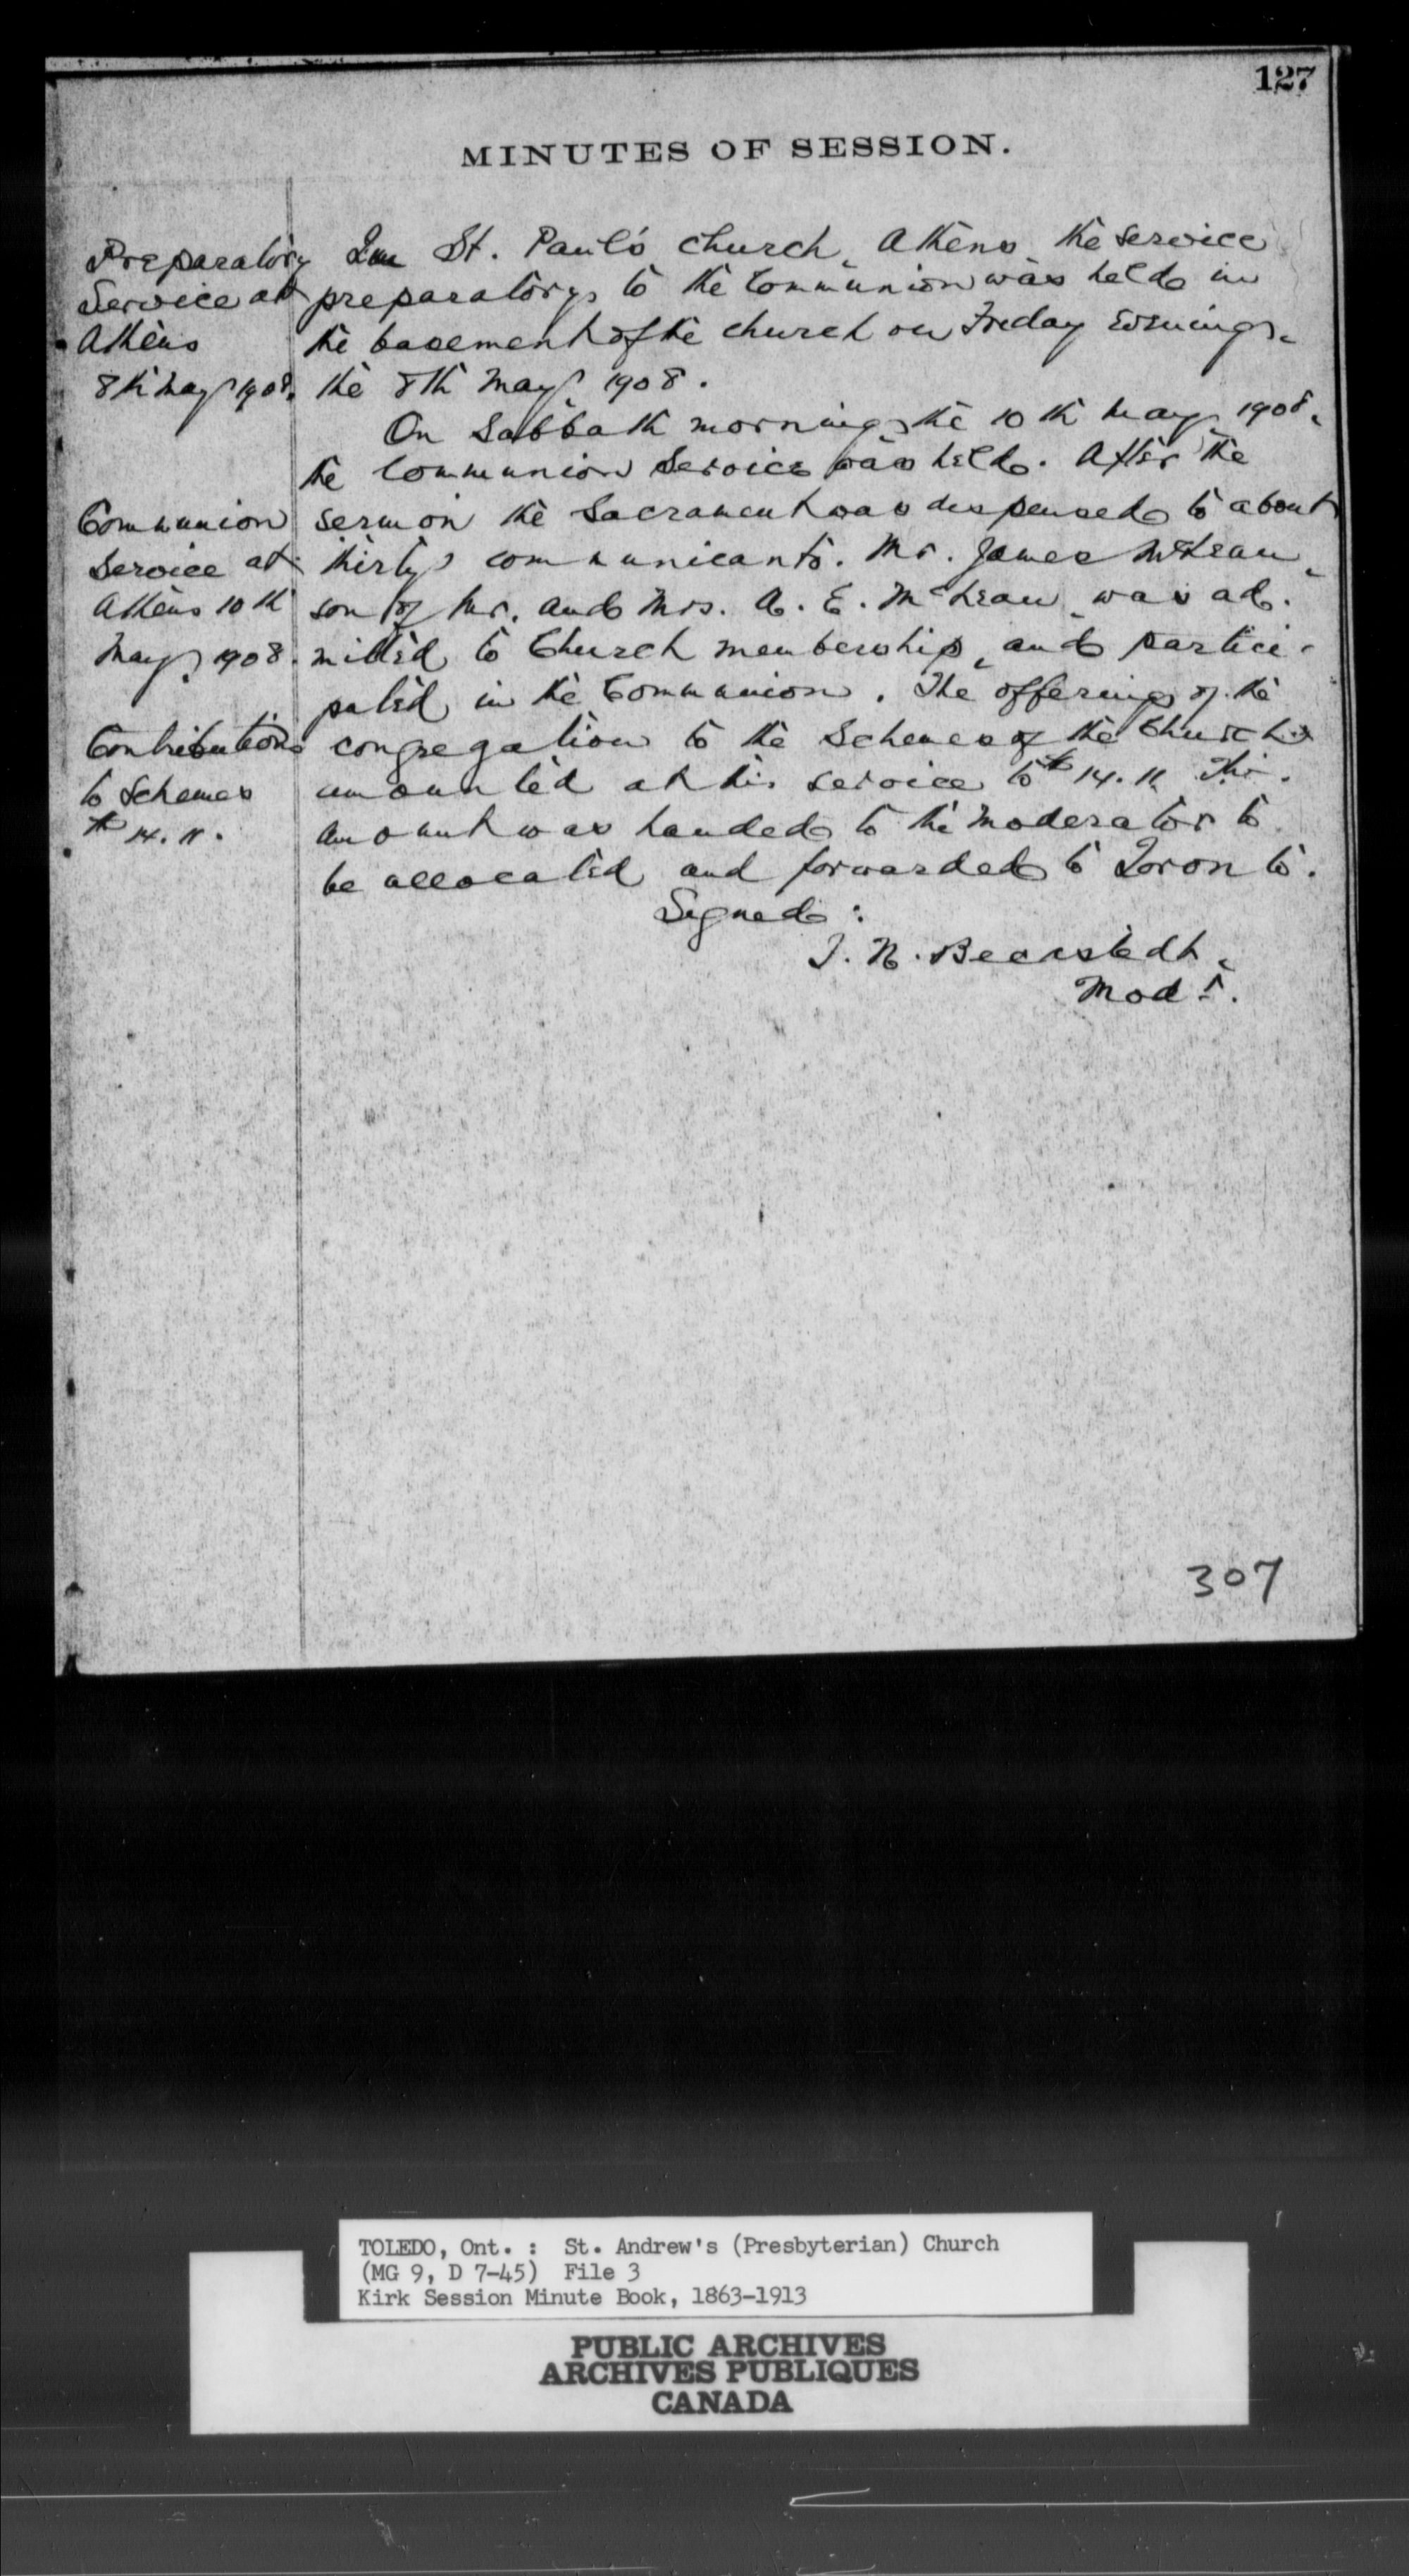 127
MINUTES OF SESSION.
Preparatory
Service at
Athens
8th May 1908.
In St. Paul's Church, Athens, the service
preparatory to the Communion was held in
the basement of the church on Friday Evening,
the 8th May, 1908.
On Sabbath morning the 10th May, 1908,
the Communion Service was held. After the
Communion
Service at
Athens 10th
May, 1908.
sermon the Sacrament was dispensed to about
thirty communicants. Mr. James McLean,
son of Mr. and Mrs. A. E. McLean, was ad-
mitted to Church membership, and partici-
pated in the Communion. The offering of the
Contributions
to Schemes
$14.11.
congregation to the Schemes of the Church
amounted at this service to $14.11. This
amount was handed to the Moderator to
be allocated and forwarded to Toronto.
Signed:
I. N. Beckstedt,
Modr.
307
TOLEDO, Ont. : St. Andrew's (Presbyterian) Church
(MG 9, D 7-45) File 3
Kirk Session Minute Book, 1863-1913
PUBLIC ARCHIVES
ARCHIVES PUBLIQUES
CANADA